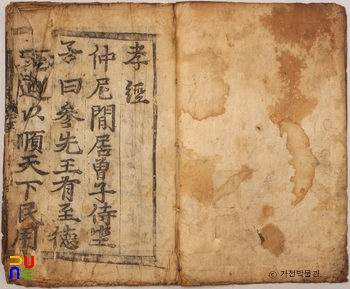 孝經
仲尼閒居曾子侍坐
子曰參先王有至德
要道以順天下民用
© 가천박물관